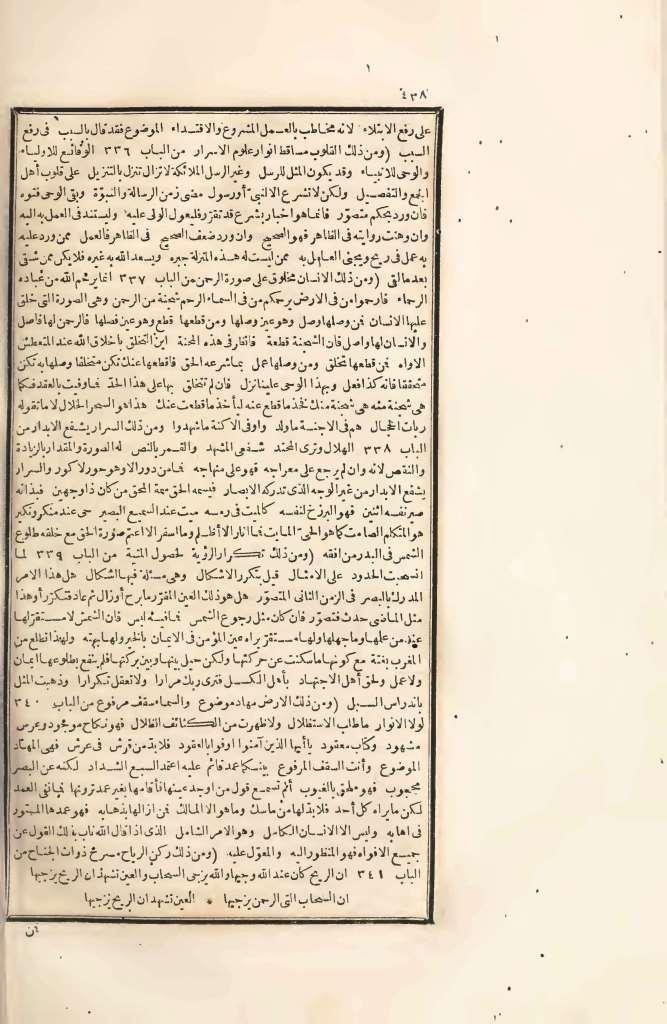 ٤٣٨
على رفع الابتلاء لانه مخاطب بالعمل المشروع والاقتداء الموضوع فقد قال بالسبب فى رفع
السبب (ومن ذلك القلوب مساقط انوار علوم الاسرار من الباب ٣٣٦ الوقائع للاولياء
والوحى للانبياء وقد يكون المثل للرسل وغير الرسل الملائكة لا تزال تنزل بالتنزيل على قلوب أهل
الجمع والتفصيل ولكن لا تشرع الا لنبىّ أو رسول مضى زمن الرسالة والنبوّة وبقى الوحى فتوّه
فان ورد بحكم متصوّر فانما هو اخبار بشرع قد تقرّر فليعوّل الولى عليه وليستند فى العمل به اليه
وان وهنت روايته فى الظاهر فهو الصحيح وان ورد ضعف الصحيح فى الظاهر فالعمل ممن ورد عليه
به عمل فى ريح ويجنى العامل به ممن ليست له هذه المنزلة خيره ويسعد الله به غيره فلا يكن ممن شقى
بعد ما لقى (ومن ذلك الانسان مخلوق على صورة الرحمن من الباب ٣٣٧ انما يرحم الله من عباده
الرحماء فارحموا من فى الارض يرحمكم من فى السماء الرحم شجنة من الرحمن وهى الصورة التى خلق
عليها الانسان فمن وصلها وصل وهو عين وصلها ومن قطعها قطع وهو عين فصلها فالرحمن لها فاصل
والانسان لها واصل فان الشجنة قطعة فانظر فى هذه المحنة اين التخلق باخلاق الله عند المتعطش
الاواه فمن قطعها تخلق ومن وصلها عمل بما شرعه الحق فاقطعها عنك تكن متخلقا وصلها به تكن
متحققا فانه كذا فعل وبهذا الوحى علينا نزل فان لم تتخلق بها على هذا الحدّ فما وفيت بالعقد فكما
هى شجنة منه هى شجنة منك فخذ ما قطع عنه ليأخذ ما قطعت عنك هذا هو السحر الحلال لا ما تقوله
ربات الحجال هم فى الاجنة ما ولدوا وفى الاكنة ما شهدوا ومن ذلك السرار يشفع الابدار من
الباب ٣٣٨ الهلال وترى المحتد شفعى المشهد والقمر بالنص له الصورة والمقدار بالزيادة
والنقص لانه وان لم يرجع على معراجه فهو على منهاجه فما من دور الا وهو حور لا كور والسرار
يشفع الابدار من غير الوجه الذى تدركه الابصار فيسمه الحق سمة المحق من كان ذا وجهين فبذاته
صير نفسه اثنين فهو البرزخ لنفسه كالميت فى رمسه ميت عند السميع البصير حى عند منكر ونكير
هو المتكلم الصامت كما هو الحى المايت فما انار الا أظلم وما اسفر الا اعتم صورة الحق مع خلقه طلوع
الشمس فى البدر من افقه (ومن ذلك تكرار الرؤية لحصول المنية من الباب ٣٣٩ لما
انسحبت الحدود على الامثال قيل بتكرر الاشكال وهى مسئلة فيها اشكال هل هذا الامر
المدرك بالبصر فى الزمن الثانى المتصوّر هل هو ذلك العين المقرّر ما برح أو زال ثم عاد فتكرّر أو هذا
مثل الماضى حدث فتصوّر فان كان مثل رجوع الشمس فما فيه لبس فان الشمس لا مستقرّ لها
عند من علمها وما جهلها ولها مستقر يراه عين المؤمن فى الايمان بالخبر ولها بهته ولهذا تطلع من
المغرب بغتة مع كونها ما سكنت عن حركتها ولكن حيل بينها وبين بركتها فلم ينتفع بطلوعها ايمان
ولا عمل ولحق أهل الاجتهاد بأهل الكسل فترى ربك مرارا ولا تعقل تكرارا وذهبت المثل
باندراس السبل (ومن ذلك الارض مهاد موضوع والسماء سقف مرفوع من الباب ٣٤٠
لولا الانوار ما طاب الاستظلال ولا ظهرت من الكثائف الظلال فهو نكاح موجود وعرس
مشهود وكتاب معقود يا أيها الذين آمنوا اوفوا بالعقود فلا بد من فرش فى عرش فهى المهاد
الموضوع وأنت السقف المرفوع بينكما عمد قائم عليه اعتمد السبع الشداد لكنه عن البصر
محجوب فهو ملحق بالغيوب ألم تسمع قول من اوجد عينها فأقامها بغير عمد ترونها فما نفى العمد
لكن ما يراه كل أحد فلا بد لها من ماسك وما هو الا المالك فمن ازالها بذهابه فهو عمدها المستور
فى اهابه وليس الا الانسان الكامل وهو الامر الشامل الذى اذا قال الله ناب بذلك القول عن
جميع الافواه فهو المنظور اليه والمعوّل عليه (ومن ذلك ركن الرياح مسرح ذوات الجناح من
الباب ٣٤١ ان الريح كأن عند الله وجيها والله يزجى السحاب والعين تشهد ان الريح يزجيها
ان السحاب التى الرحمن يزجيها * العين تشهد ان الريح يزجيها